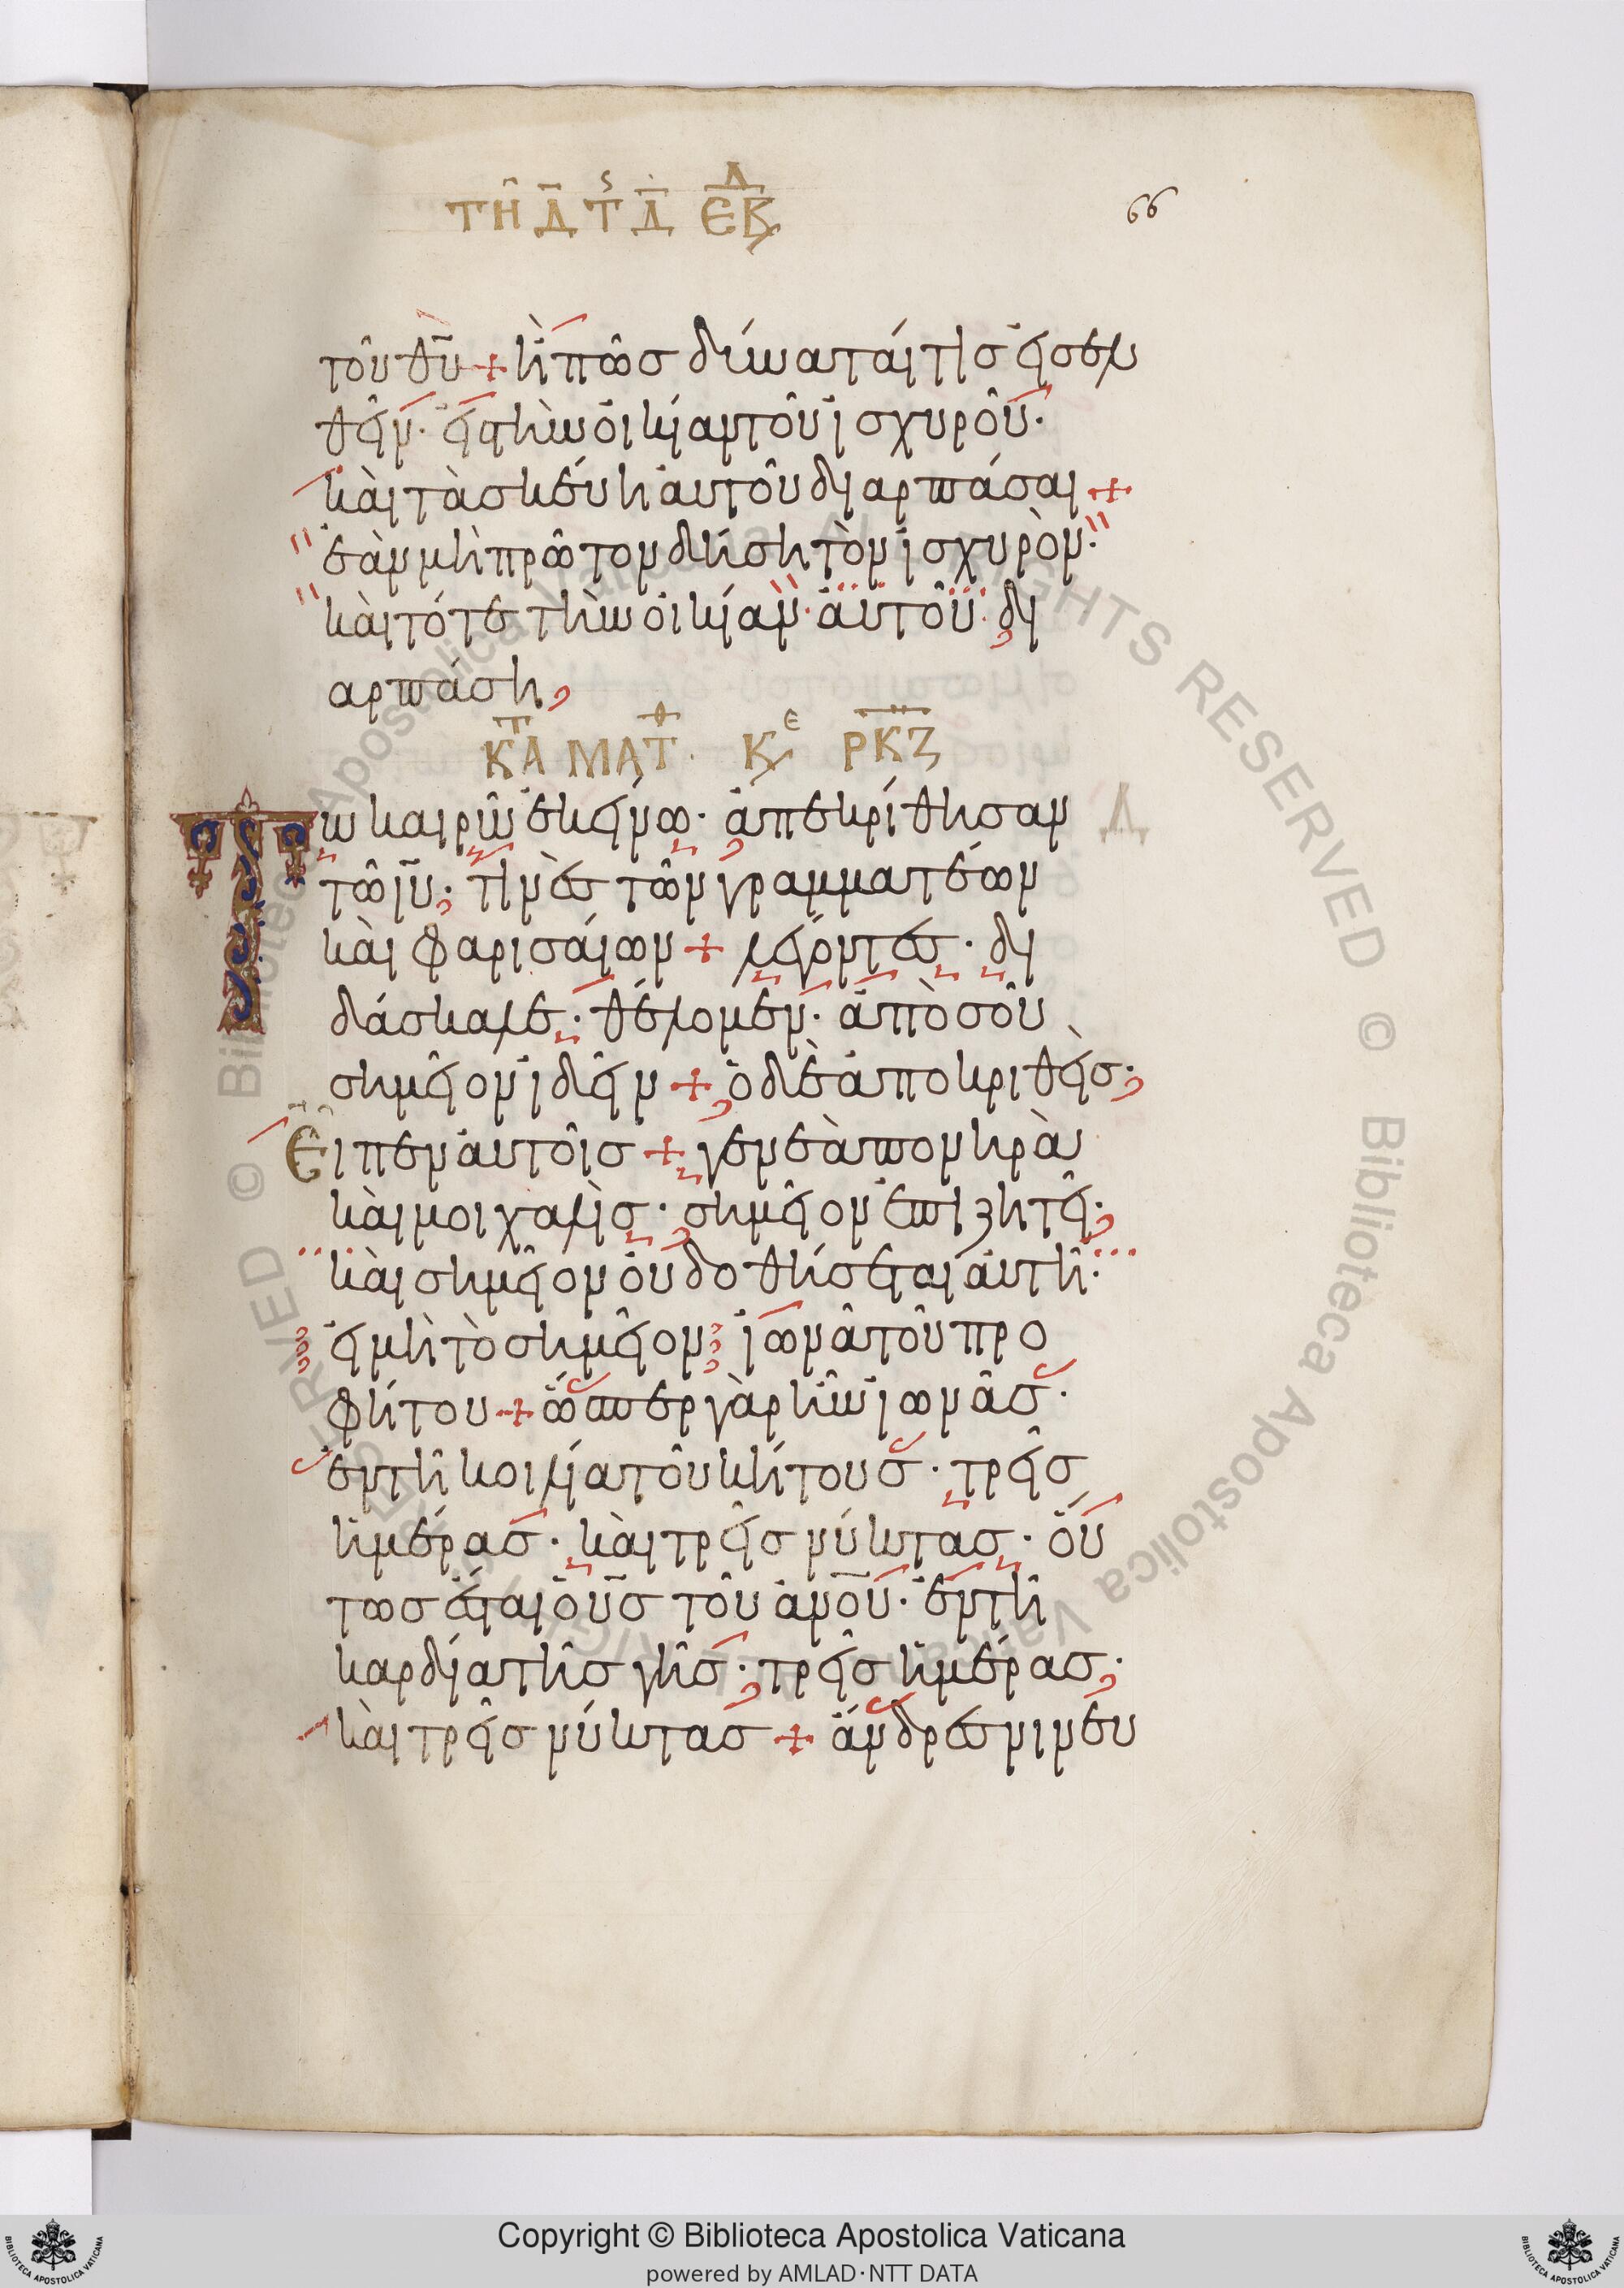 ΤΗ Δ ΤΣ Δ ΕΒΔ
66
τοῦ θυ + ἢ πῶσ δύναται τὶσ εἰσελ
θεῖν· εἰσ τὴν οἰκίαν τοῦ ἰσχυροῦ·
καὶ τὰ σκεύη αὐτοῦ διαρπάσαι +
ἐὰν μὴ πρῶτον δήση τὸν ἰσχυρὸν·
καὶ τότε τὴν οἰκίαν· αὐτοῦ· δι
αρπάση,
ΚΤΑ ΜΑΤΘ· Κε ΡΚΖ
Τω καιρῶ ἐκείνω· ἀπεκρίθησαν Δ
τῶ ιυ· τινὲσ τῶν γραμματέων
καὶ φαρισαίων + λέγοντεσ· δι
δάσκαλε· θέλομεν· ἀπὸ σοῦ
σημεῖον ἰδεῖν + ὁ δὲ ἀποκριθεὶσ·
Εἶπεν αὐτοῖσ + γενεὰ πονηρὰ
καὶ μοιχαλὶσ· σημεῖον ἐπιζητεῖ·
καὶ σημεῖον οὐ δοθήσεται αὐτῆ·
εἰ μὴ τὸ σημεῖον ἰωνᾶ τοῦ προ
φήτου + ὥσπερ γὰρ ἦν ἰωνᾶσ·
ἐν τῆ κοιλία τοῦ κήτουσ· τρεῖσ
ἡμέρασ· καὶ τρεῖσ νύκτασ· οὕ
τωσ ἔσται ὁ υσ τοῦ ανου· ἐν τῆ
καρδία τῆσ γῆσ· τρεῖσ ἡμέρασ·
καὶ τρεῖσ νύκτασ + ἄνδρεσ νινευ
Copyright © Biblioteca Apostolica Vaticana
powered by AMLAD·NTT DATA